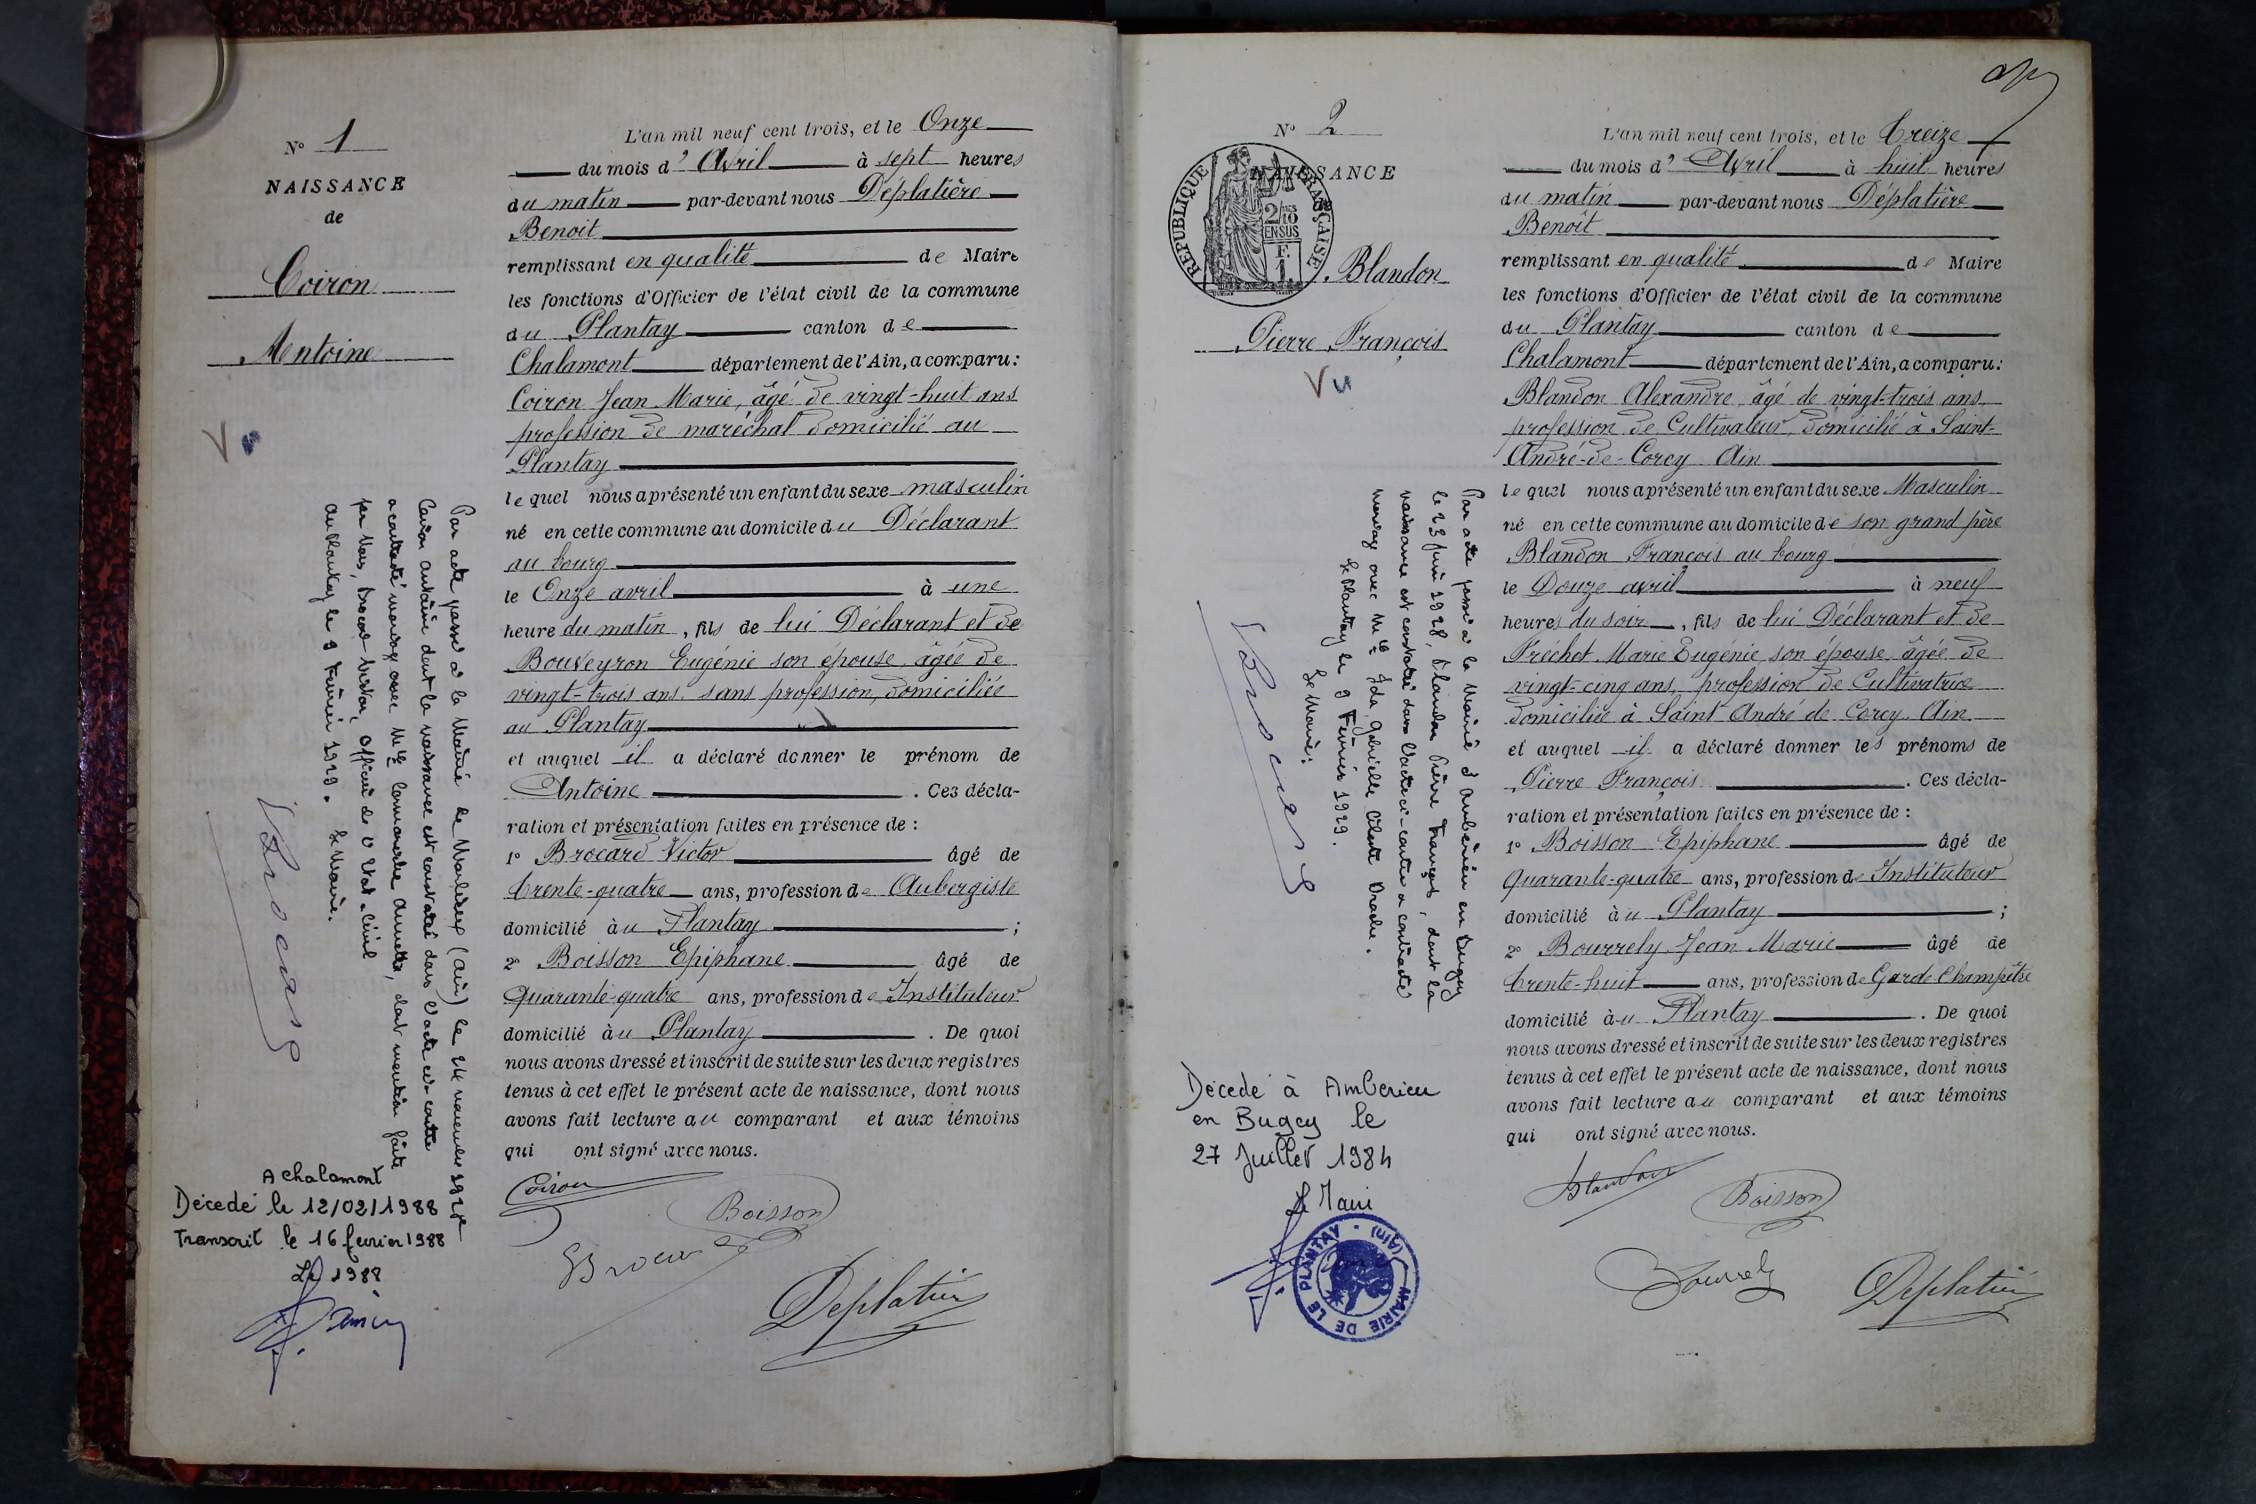 N° 1
NAISSANCE
de
Coiron
Antoine
Vu
L'an mil neuf cent trois, et le Onze
du mois d' Avril à sept heures
du matin par-devant nous Déplatière
Benoit
remplissant en qualité de Maire
les fonctions d'Officier de l'état civil de la commune
du Plantay canton de
Chalamont département de l'Ain, a comparu:
Coiron Jean Marie, âgé de vingt-huit ans
profession de maréchal domicilié au
Plantay
lequel nous a présenté un enfant du sexe masculin
né en cette commune au domicile du Déclarant
au bourg
le Onze avril à une
heure du matin, fils de lui Déclarant et de
Bouveyron Eugénie son épouse, âgée de
vingt-trois ans, sans profession, domiciliée
au Plantay
et auquel il a déclaré donner le prénom de
Antoine. Ces décla-
ration et présentation faites en présence de :
1° Brocard Victor âgé de
trente-quatre ans, profession de Aubergiste
domicilié àu Plantay ;
2° Boisson Epiphane âgé de
Quarante-quatre ans, profession de Instituteur
domicilié àu Plantay. De quoi
nous avons dressé et inscrit de suite sur les deux registres
tenus à cet effet le présent acte de naissance, dont nous
avons fait lecture au comparant et aux témoins
qui ont signé avec nous.
Coiron
Boisson
Brocard
Deplatière
Par acte passé à la Mairie de Marlieux (Ain) le 24 novembre
Coiron Antoine dont la naissance est constatée dans l'acte ci-contre
a contracté mariage avec Mlle Annette, dont mention faite
par Nous, Brocard Victor, Officier de l'Etat-Civil
au Plantay le 9 Février 1929. Le Maire.
Brocard
A chalamont
Décedé le 12/02/1988
Transcrit le 16 fevrier 1988
Le 1988
N° 2
NAISSANCE
de
RÉPUBLIQUE FRANÇAISE
2/10 EN SUS
Blandon
Pierre François
Vu
L'an mil neuf cent trois, et le treize
du mois d' Avril à huit heures
du matin par-devant nous Déplatière
Benoît
remplissant en qualité de Maire
les fonctions d'Officier de l'état civil de la commune
du Plantay canton de
Chalamont département de l'Ain, a comparu:
Blandon Alexandre, âgé de vingt-trois ans,
profession de Cultivateur, domicilié à Saint-
André-de-Corcy Ain
lequel nous a présenté un enfant du sexe Masculin
né en cette commune au domicile de son grand père
Blandon François au bourg
le Douze avril à neuf
heures du soir, fils de lui Déclarant et de
Fréchet Marie Eugénie, son épouse, âgée de
vingt-cinq ans, profession de Cultivatrice
domiciliée à Saint André de Corcy Ain
et auquel il a déclaré donner les prénoms de
Pierre François. Ces décla-
ration et présentation faites en présence de :
1° Boisson Epiphane âgé de
Quarante-quatre ans, profession de Instituteur
domicilié àu Plantay ;
2° Bourrely Jean Marie âgé de
trente-huit ans, profession de Garde-Champêtre
domicilié àu Plantay. De quoi
nous avons dressé et inscrit de suite sur les deux registres
tenus à cet effet le présent acte de naissance, dont nous
avons fait lecture au comparant et aux témoins
qui ont signé avec nous.
Blandon
Boisson
Bourrely
Deplatière
Par acte passé à la Mairie d'Ambérieu en Bugey
le 23 Juin 1928, Blandon Pierre François, dont la
naissance est constatée dans l'acte ci-contre a contracté
mariage avec Mlle Ida, Gabrielle
Le Plantay le 9 Février 1929.
Le Maire:
Brocard
Décedé à Amberieu
en Bugey le
27 Juillet 1984
Le Maire
MAIRIE DE LE PLANTAY (Ain)